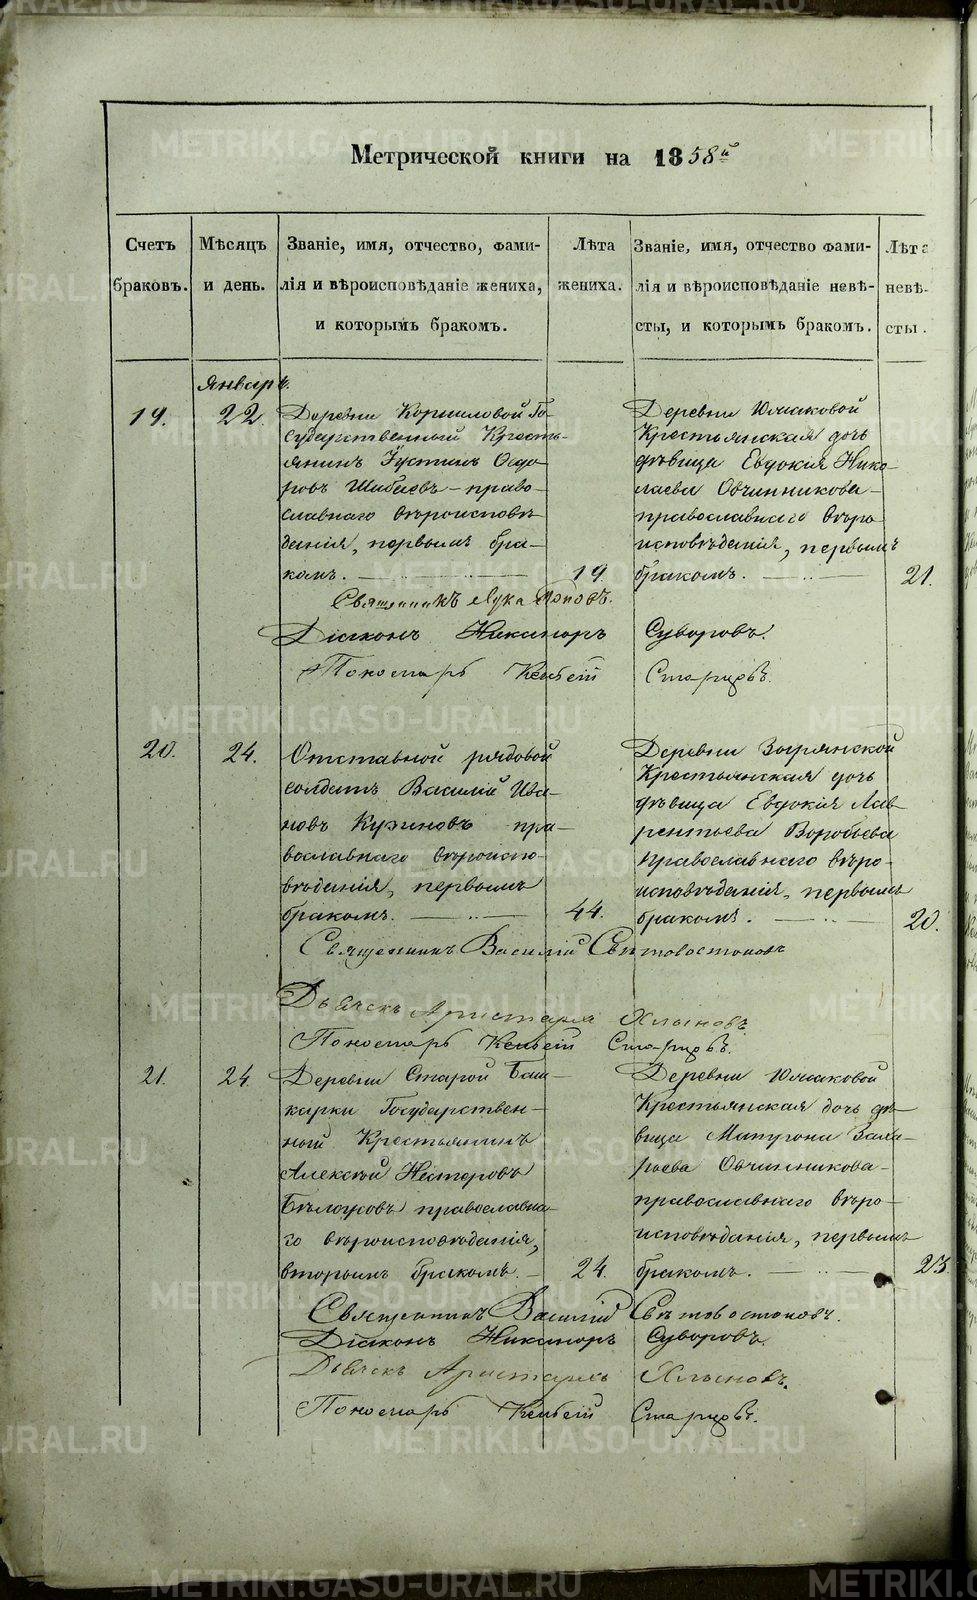 Метрической книги на 1858й
Счетъ браковъ.
Мѣсяцъ и день.
Званіе, имя, отчество, фами-
лія и вѣроисповѣданіе жениха,
и которымъ бракомъ.
Лѣта жениха.
Званіе, имя, отчество фами-
лія и вѣроисповѣданіе невѣ-
сты, и которымъ бракомъ.
Лѣта невѣ-
сты.
Январь.
19.
22.
Деревни Корниловой Го-
сударственный Кресть-
янинъ Іустинъ Ѳедо-
ровъ Шабаевъ - право-
славнаго вѣроисповѣ-
данія, первымъ бра-
комъ.
19.
Деревни Юлшаковой
Крестьянская дочь
дѣвица Евдокія Нико-
лаева Овчинникова -
православнаго вѣро-
исповѣданія, первымъ
бракомъ.
21.
Священникъ Лука Поповъ.
Діаконъ Никаноръ Суворовъ.
Пономарь Старцовъ.
20.
24.
Отставной рядовой
солдатъ Василій Ива-
новъ пра-
вославнаго вѣроиспо-
вѣданія, первымъ
бракомъ.
44.
Деревни
Крестьянская дочь
дѣвица Евдокія Лав-
рентьева Воробьева
православнаго вѣро-
исповѣданія, первымъ
бракомъ.
20.
Священникъ Василій Свѣтовостоковъ
Дьячекъ Аристархъ Хлыновъ.
Пономарь Старцовъ.
21.
24.
Деревни Старой Баш-
карки Государствен-
ный Крестьянинъ
Алексѣй Несторовъ
православна-
го вѣроисповѣданія,
вторымъ бракомъ.
24.
Деревни Юлшаковой
Крестьянская дочь дѣ-
вица Захарьева
Овчинникова -
православнаго вѣро-
исповѣданія, первымъ
бракомъ.
23.
Священникъ Василій Свѣтовостоковъ.
Діаконъ Никаноръ Суворовъ.
Дьячекъ Аристархъ Хлыновъ.
Пономарь Старцовъ.
METRIKI.GASO-URAL.RU